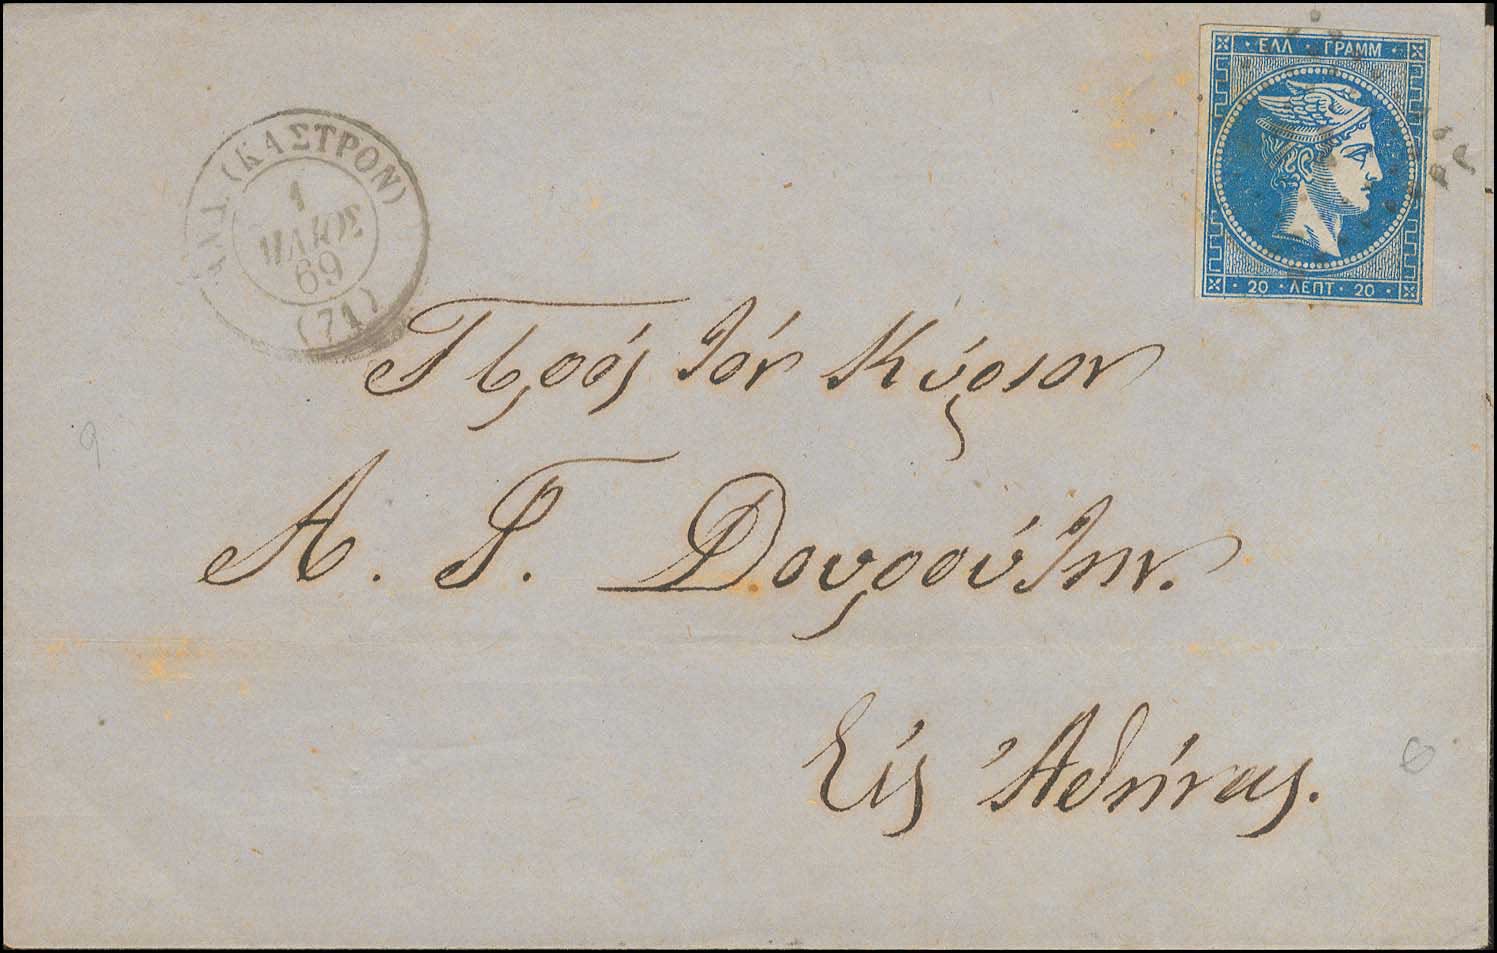 ΕΛΛ · ΓΡΑΜΜ
20 · ΛΕΠΤ · 20
(ΚΑΣΤΡΟΝ)
1
ΜΑΙΟΣ
69
(74)
Πρός τόν Κύριον
Α. Γ. Δουρούτην.
Εἰς Ἀθήνας.
9
8